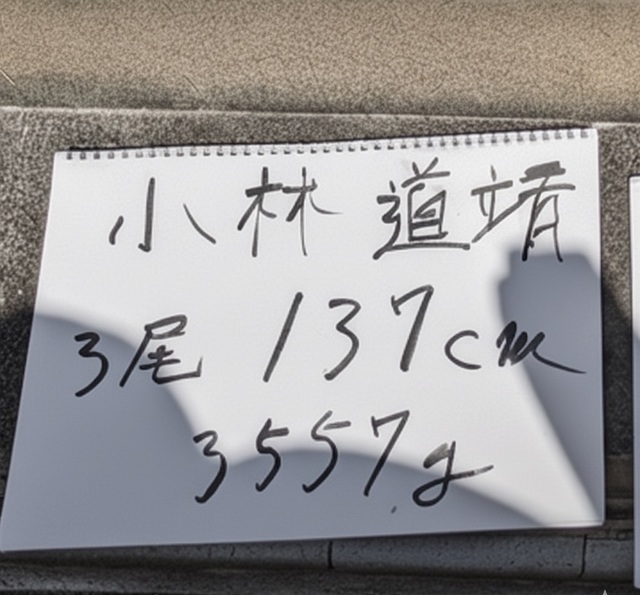 小林道靖
3尾 137cm
3557g